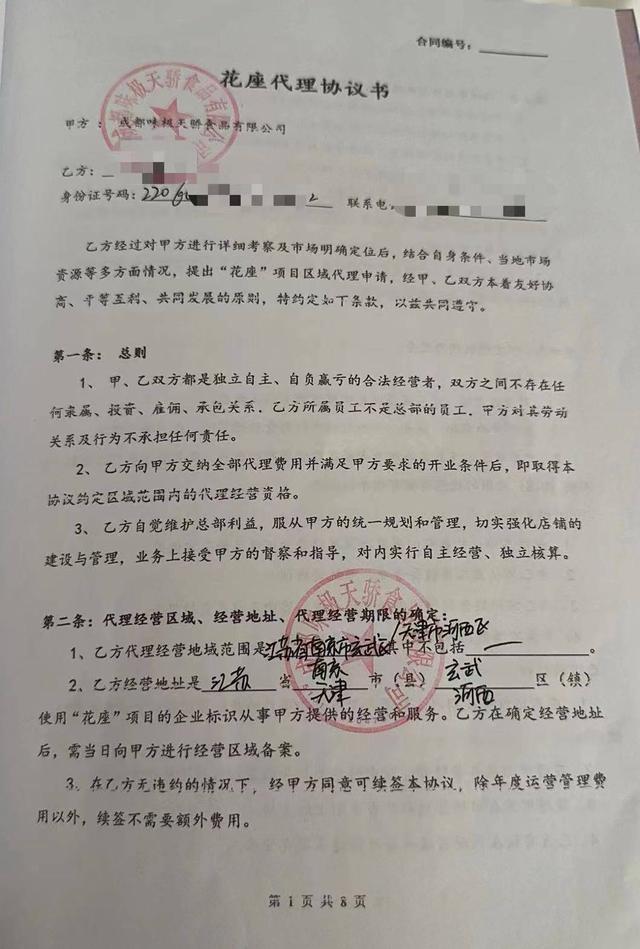 合同编号:
花座代理协议书
甲方： 成都味极天骄食品有限公司
乙方:
身份证号码: 220 2 联系电
乙方经过对甲方进行详细考察及市场明确定位后，结合自身条件、当地市场
资源等多方面情况，提出“花座”项目区域代理申请，经甲、乙双方本着友好协
商、平等互利、共同发展的原则，特约定如下条款，以兹共同遵守。
第一条： 总则
1、 甲、乙双方都是独立自主、自负赢亏的合法经营者，双方之间不存在任
何隶属、投资、雇佣、承包关系．乙方所属员工不是总部的员工．甲方对其劳动
关系及行为不承担任何责任。
2、 乙方向甲方交纳全部代理费用并满足甲方要求的开业条件后，即取得本
协议约定区域范围内的代理经营资格。
3、 乙方自觉维护总部利益，服从甲方的统一规划和管理，切实强化店铺的
建设与管理，业务上接受甲方的督察和指导，对内实行自主经营、独立核算。
第二条：代理经营区域、经营地址、代理经营期限的确定：
1、乙方代理经营地域范围是江苏省南京市玄武区/天津市河西区其中不包括 一 。
2、乙方经营地址是 江苏 省 南京 天津 市（县） 玄武 河西 区（镇）
使用“花座”项目的企业标识从事甲方提供的经营和服务。乙方在确定经营地址
后，需当日向甲方进行经营区域备案。
3、在乙方无违约的情况下，经甲方同意可续签本协议，除年度运营管理费
用以外，续签不需要额外费用。
第 1 页 共 8 页